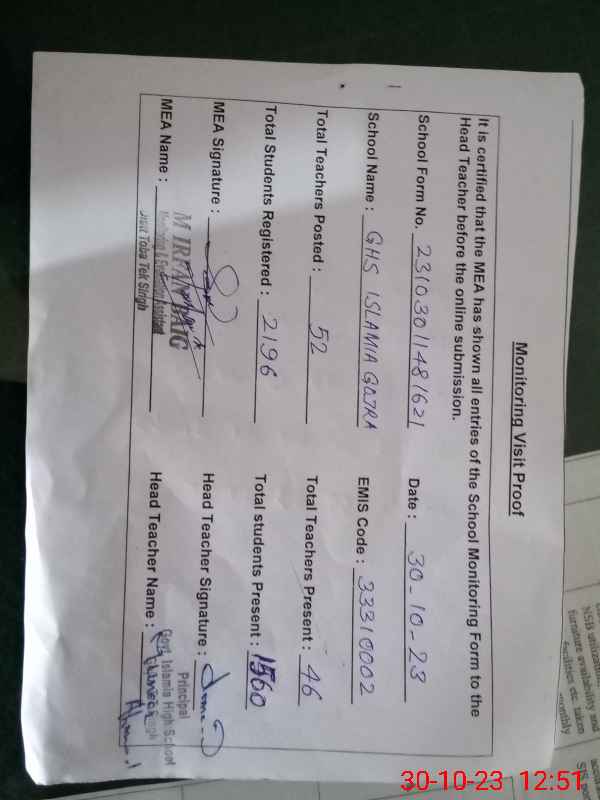 Monitoring Visit Proof
It is certified that the MEA has shown all entries of the School Monitoring Form to the
Head Teacher before the online submission.
School Form No. 23103011481621 Date : 30-10-23
School Name : GHS ISLAMIA GOJRA EMIS Code : 33310002
Total Teachers Posted : 52 Total Teachers Present : 46
Total Students Registered : 2196 Total students Present : 1560
MEA Signature : Head Teacher Signature :
MEA Name : M IRFAN BAIG Head Teacher Name :
Monitoring & Evaluation Assistant
Distt Toba Tek Singh
Principal
Govt Islamia High School
NSB utilization
furniture availability and
facilities etc. taken
monthly
30-10-23 12:51